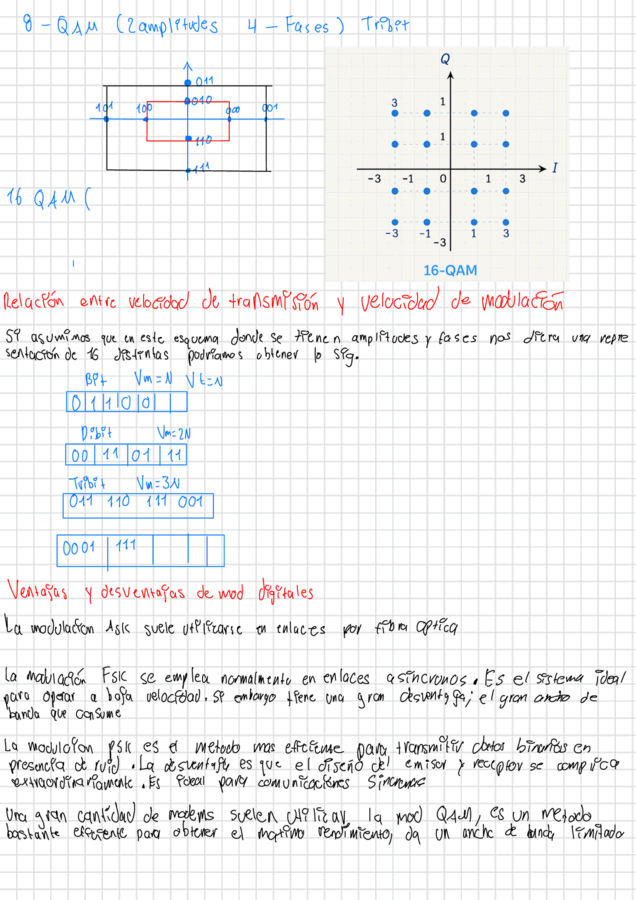 8 - QAM (2 amplitudes 4 - Fases) Tribit
011
010
101 100 000 001
110
111
16 QAM (
Q
3 1
1
I
-3 -1 0 1 3
-3 -1 1 3
-3
16-QAM
Relación entre velocidad de transmisión y velocidad de modulación
Si asumimos que en este esquema donde se tienen amplitudes y fases nos diera una repre
sentación de 16 distintas podriamos obtener lo sig.
Bit Vm=N Vt=N
0 1 1 0 0
Dibit Vm=2N
00 11 01 11
Tribit Vm=3N
011 110 111 001
0001 111
Ventajas y desventajas de mod digitales
La modulación Ask suele utilizarse en enlaces por fibra optica
La modulación FSK se emplea normalmente en enlaces asincronos. Es el sistema ideal
para operar a baja velocidad. Si embargo tiene una gran desventaja; el gran ancho de
banda que consume
La modulación PSK es el metodo mas eficiense para transmitir datos binarios en
presencia de ruid. La desventaja es que el diseño del emisor y receptor se complica
extraordinariamente. Es ideal para comunicaciones Sincronas
Una gran cantidad de modems suelen utilizar la mod QAM, es un metodo
bastante eficiente para obtener el maximo rendimiento, da un ancho de banda limitado